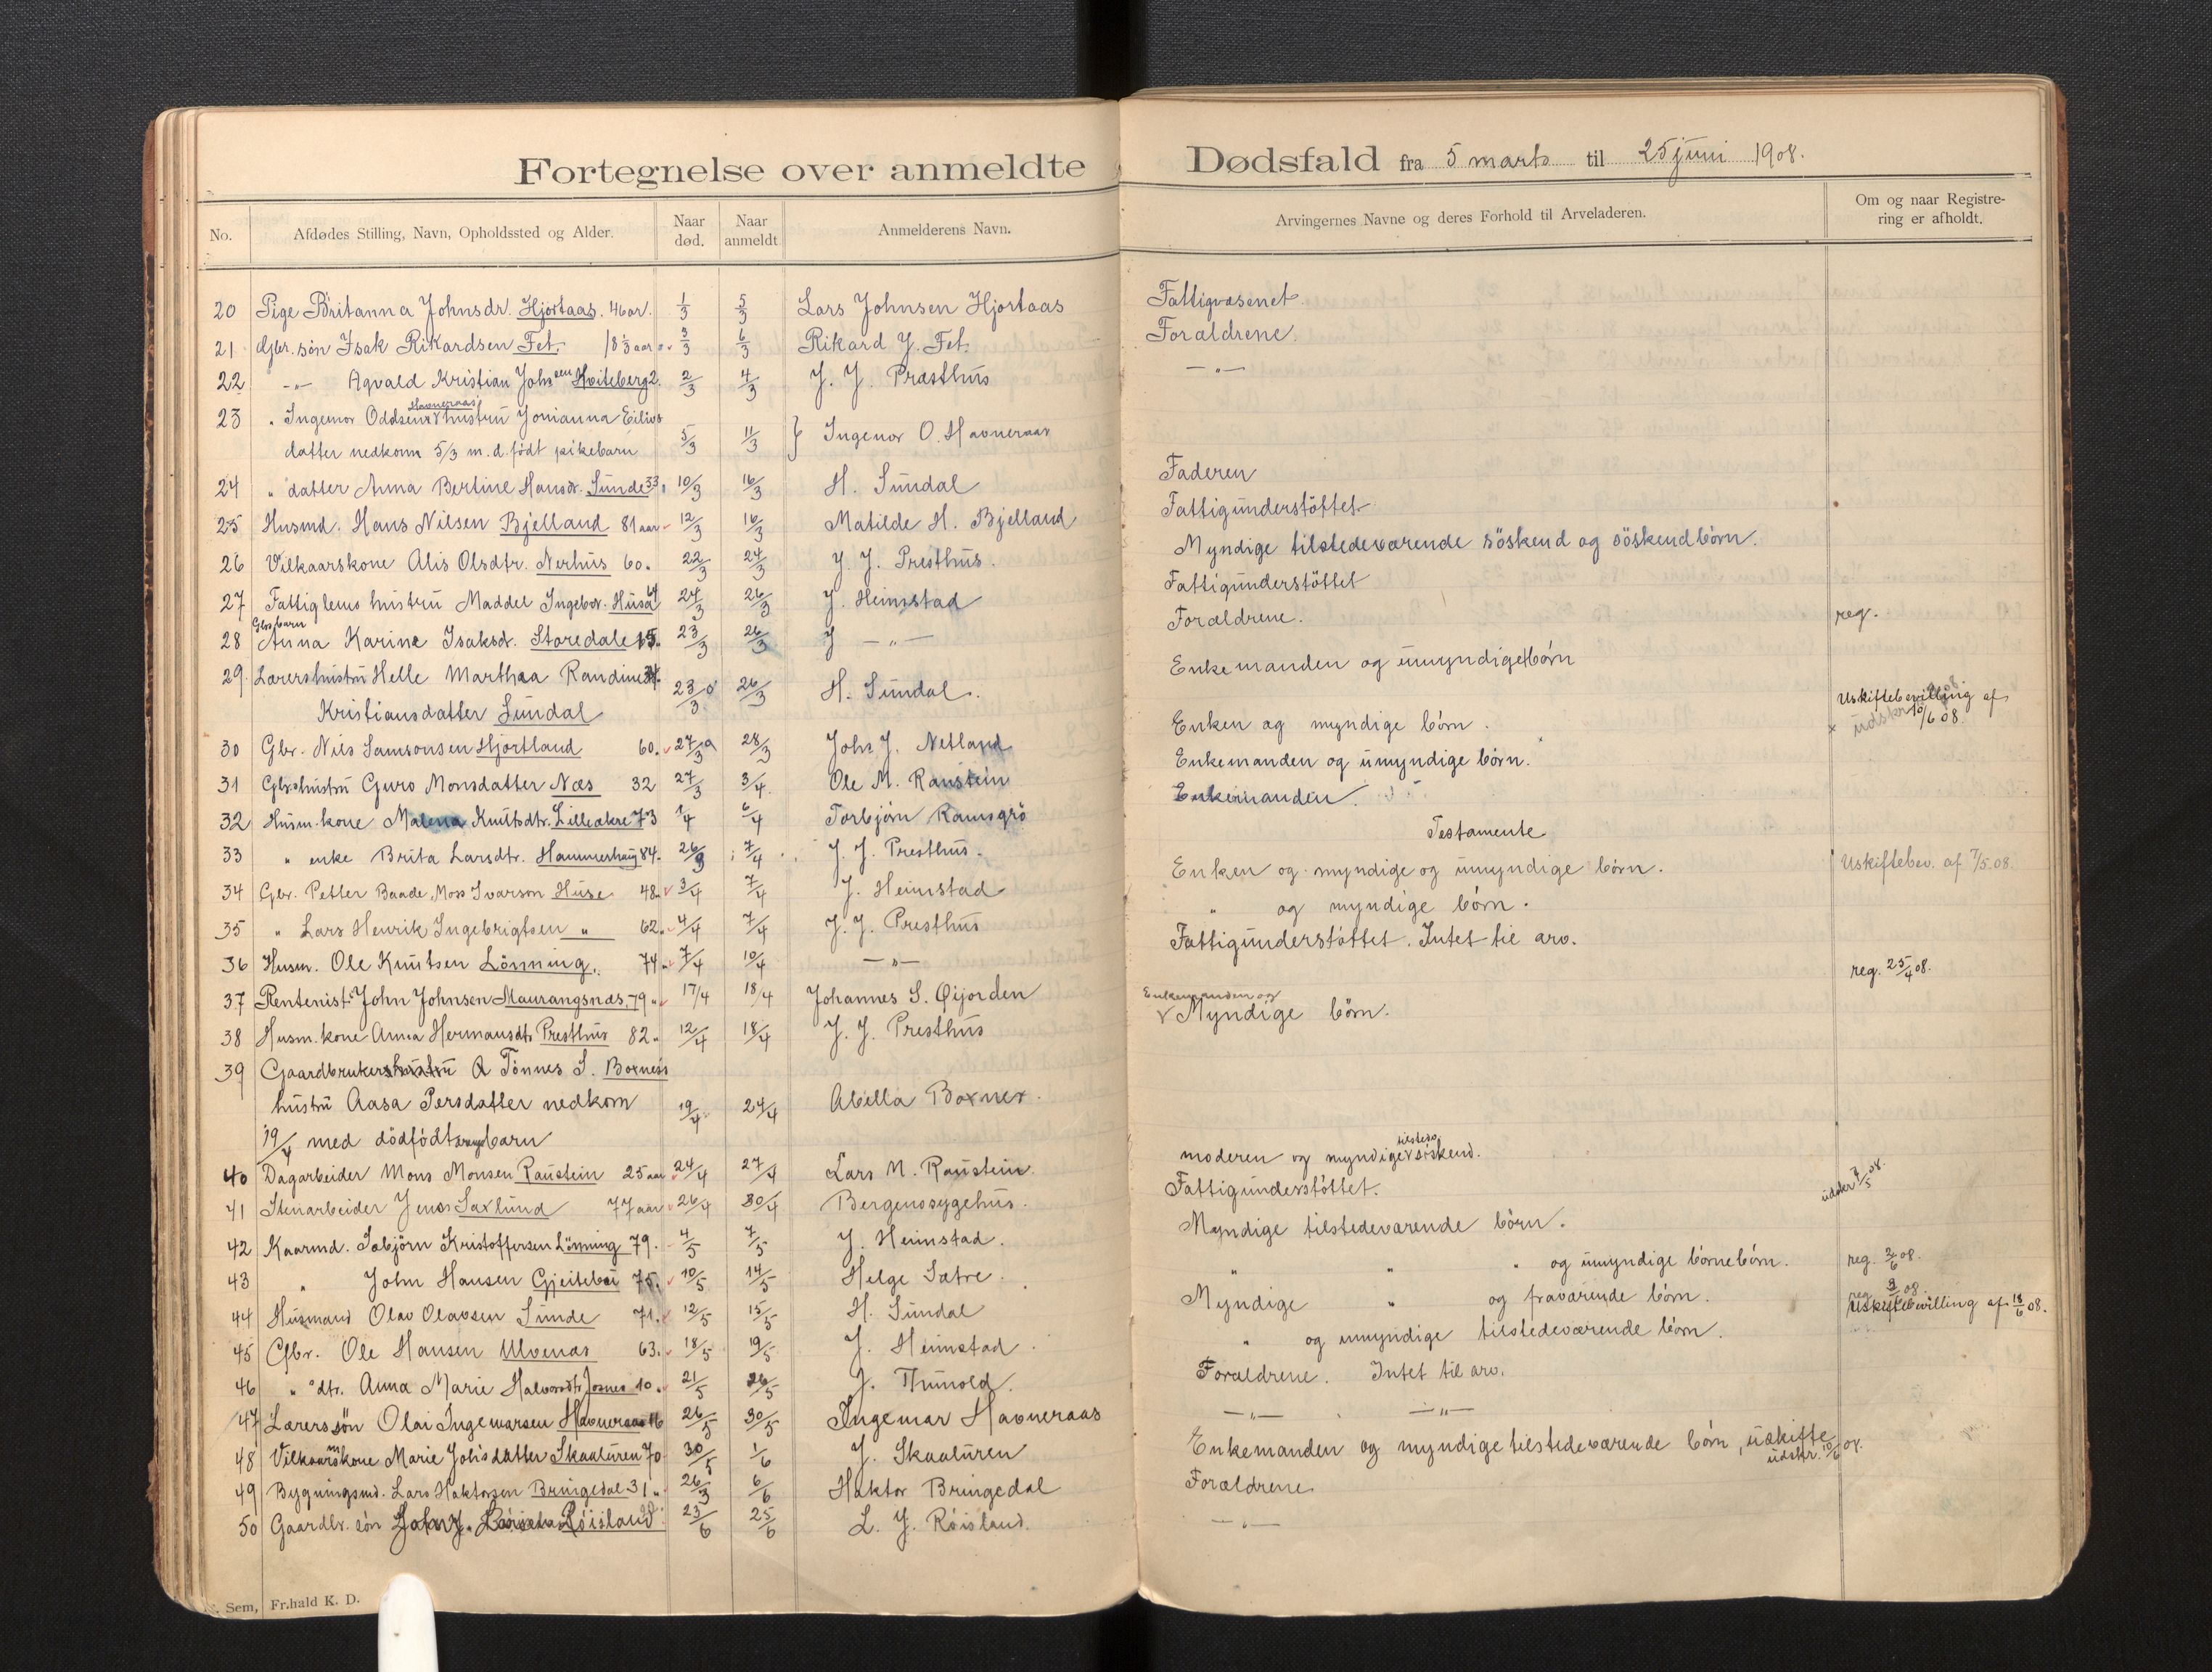 Fortegnelse over anmeldte Dødsfald fra 5 marts til 25 juni 1908.
No. Afdødes Stilling, Navn, Opholdssted og Alder. Naar død. Naar anmeldt Anmelderens Navn. Arvingernes Navne og deres Forhold til Arveladeren. Om og naar Registrering er afholdt.
20 Pige Britanna Johnsdr. Hjortaas. 46 ar. 1/3 5/3 Lars Johnsen Hjortaas Fattigvæsenet.
21 Gbr. søn Isak Rikardsen Fet. 18 1/3 aar 3/3 6/3 Rikard J. Fet. Forældrene.
22 -"- Agvald Kristian Johs sen Hviteberg 2. 2/3 4/3 J. J. Præsthus -"-
23 " Ingemor Oddsens Havneraas hustru Jonianna Eilivs
datter nedkom 5/3 m. d. født pikebarn 5/3 11/3 } Ingemor O. Havneraas
24 " datter Anna Bertine Hansdr. Sunde 33 10/3 16/3 H. Sundal Faderen
25 Husmd. Hans Nilsen Bjelland 81 aar 12/3 16/3 Matilde H. Bjelland Fattigunderstöttet
26 Vilkaarskone Alis Olsdtr. Nerhus 60. 22/3 24/3 J. J. Presthus. Myndige tilstedeværende söskend og söskendbörn.
27 Fattiglems hustru Maddel Ingebor. Husa 24/3 26/3 J. Heimstad Fattigunderstöttet
28 Gbrs barn Anna Karine Isaksdr. Storedale 15. 23/3 26/3 J -"- Forældrene. reg.
29. Lærershustru Helle Marthea Randine
Kristiansdatter Sundal 23/3 26/3 H. Sundal. Enkemanden og umyndige börn
30 Gbr. Nils Samsonsen Hjortland 60. 27/3 28/3 Johs J. Netland Enken og myndige börn. Uskiftebevilling af 10/6 08.
31 Gbrs hustru Guro Monsdatter Næs 32 27/3 3/4 Ole M. Raustein Enkemanden og umyndige börn.
32 Husm. kone Malena Knutsdtr. Lilleakre 73 1/4 6/4 Torbjörn Ramsgrö Enkemanden.
33 " enke Brita Larsdtr. Hammerhaug 84. 26/3 7/4 J. J. Presthus. Testamente
34 Gbr. Petter Baade Moss Ivarson Huse 48. 3/4 7/4 J. Heimstad Enken og myndige og umyndige börn. Uskiftebev. af 7/5 08.
35 " Lars Henrik Ingebrigtsen " 62. 4/4 7/4 J. J. Presthus " og myndige börn.
36 Husm. Ole Knutsen Lönning. 74 7/4 10/4 -"- Fattigunderstöttet. Intet til arv.
37 Rentenist John Johnsen Maurangsnæs. 79 17/4 18/4 Johannes S. Øijorden reg. 25/4 08.
38 Husm. kone Anna Hermansdtr Presthus 82. 12/4 18/4 J. J. Presthus Enkemanden og Myndige börn.
39 Gaardbrukers hustru A Tönnes S. Boxness
hustru Aasa Persdatter nedkom 19/4 24/4 Abella Boxnes.
19/4 med dödfödt barn
40 Dagarbeider Mons Monsen Raustein 25 aar 24/4 27/4 Lars M. Raustein. moderen og myndige tilsteds söskend.
41 Stenarbeider Jens Saxlund 77 aar 26/4 30/4 Bergens sygehus. Fattigunderstöttet. udskr 7/5 08.
42 Kaarmd. Isbjörn Kristoffersen Lönning 79. 4/5 7/5 J. Heimstad. Myndige tilstedeværende börn.
43 " John Hansen Gjeitebø 75. 10/5 14/5 Helge Sætre. " " " og umyndige börnebörn. reg. 3/6 08.
44 Husmand Olav Olavsen Sunde 71. 12/5 15/5 H. Sundal Myndige " og fraværende börn. reg 3/6 08.
45 Gbr. Ole Hansen Ulvenas 63. 18/5 19/5 J. Heimstad. " og umyndige tilstedeværende börn. Uskiftebevilling af 18/6 08.
46 " dtr. Anna Marie Halvorsdtr Josnes 10. 21/5 26/5 J. Thunold. Forældrene. Intet til arv.
47 Lærerssön Olai Ingemarsen Havneraas 16 26/5 30/5 Ingemar Havneraas -"- -"-
48 Vilkaarmskone Marie Johsdatter Skaaluren 70 30/5 1/6 J. Skaaluren Enkemanden og myndige tilstedeværende börn, uskifte udskr. 10/6 08.
49 Bygningsmd. Lars Haktorsen Bringedal 31. 26/3 6/6 Haktor Bringedal Forældrene
50 Gaardbr. sön Röisland 23/6 25/6 L. J. Röisland. -"-
Sem, Fr.hald K. D.